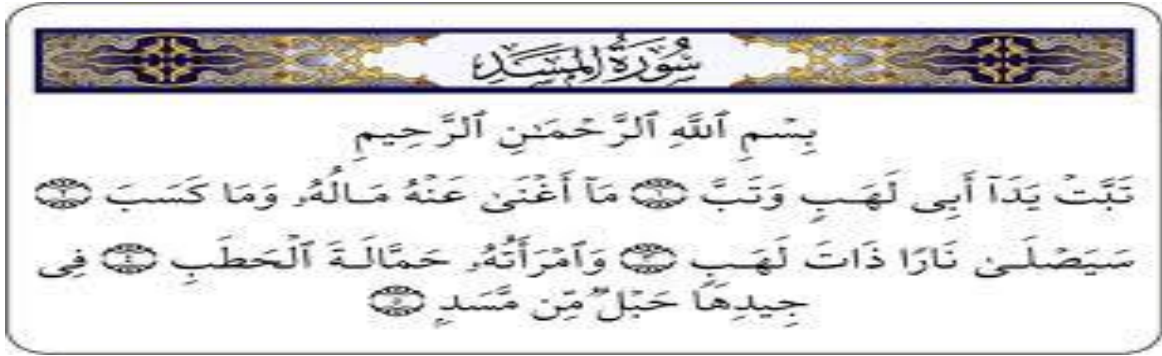 سُورَةُ المَسَدِ
بِسۡمِ ٱللَّهِ ٱلرَّحۡمَـٰنِ ٱلرَّحِيمِ
تَبَّتۡ يَدَآ أَبِى لَهَبٍ وَتَبَّ ۝١ مَآ أَغۡنَىٰ عَنۡهُ مَالُهُۥ وَمَا كَسَبَ ۝٢
سَيَصۡلَىٰ نَارًا ذَاتَ لَهَبٍ ۝٣ وَٱمۡرَأَتُهُۥ حَمَّالَةَ ٱلۡحَطَبِ ۝٤ فِى
جِيدِهَا حَبۡلٌ مِّن مَّسَدِۭ ۝٥